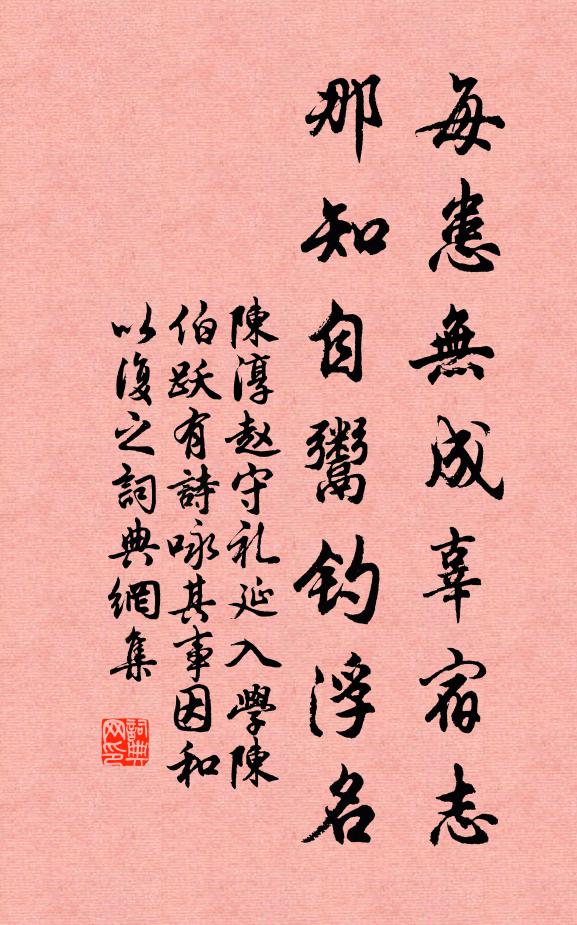 每患無成辜宿志
那知自鬻釣浮名
陳淳趙守礼延入學陳
伯跃有詩咏其事因和
以復之詞典網集
詞典网印